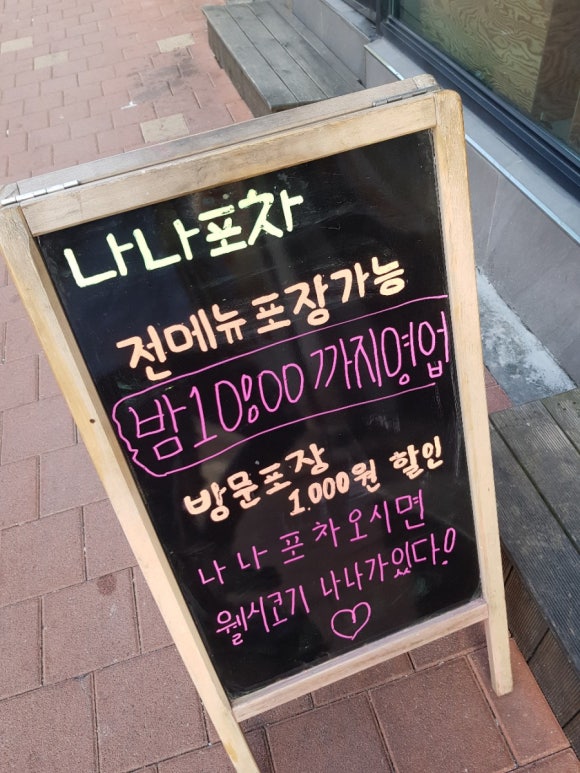 나나포차
전메뉴포장가능
밤10:00까지영업
방문포장
1.000원 할인
나나포차오시면
웰시코기 나나가있다!